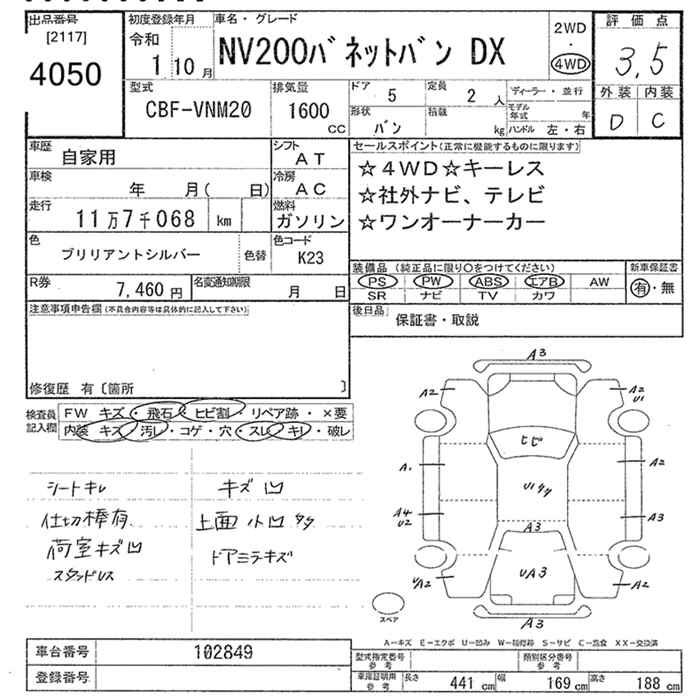 出品番号
[2117]
4050
初度登録年月
令和
1 10 月
車名・グレード
NV200バネットバン DX
2WD
・
4WD
評価点
3.5
外装 内装
D C
型式
CBF-VNM20
排気量
1600
CC
ドア
5
定員
2 人
ディーラー・並行
形状
バン
積載
kg
モデル年式 年
ハンドル 左・右
車歴
自家用
シフト
AT
車検
年 月( 日)
冷房
AC
走行
11万7千068 km
燃料
ガソリン
色
ブリリアントシルバー
色替
色コード
K23
R券
7,460 円
名変通知期限
月 日
セールスポイント(正常に機能するものに限ります)
☆4WD☆キーレス
☆社外ナビ、テレビ
☆ワンオーナーカー
装備品(純正品に限り○をつけてください)
PS PW ABS エアB AW
SR ナビ TV カワ
新車保証書
有・無
後日品
保証書・取説
注意事項申告欄(不具合内容等は具体的に記入して下さい)
修復歴 有〔箇所 〕
検査員
記入欄
FW キズ・飛石・ヒビ割・リペア跡・×要
内装 キズ・汚レ・コゲ・穴・スレ・キレ・破レ
シートキレ
仕切棒有
荷室キズ凹
スタッドレス
キズ凹
上面小凹タタ
ドアミラキズ
A3
A2
A2
U1
ヒビ
A1
A2
U1タタ
A4
U2
A3
A3
UA3
UA2
A2
A3
スペア
A-キズ E-エクボ U-凹み W-補修跡 S-サビ C-腐食 XX-交換済
車台番号
102849
登録番号
型式指定番号
参考
類別区分番号
参考
車庫証明用
参考
長さ 441 cm 幅 169 cm 高さ 188 cm